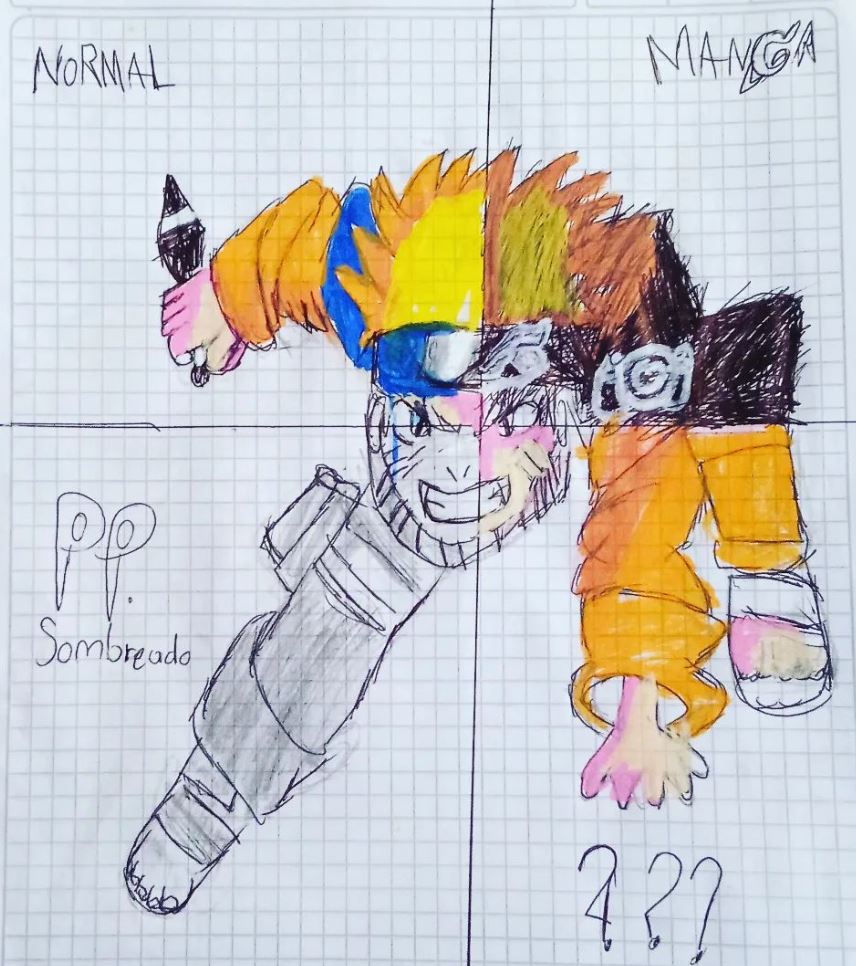 NORMAL
MANGA
PP.
Sombreado
???